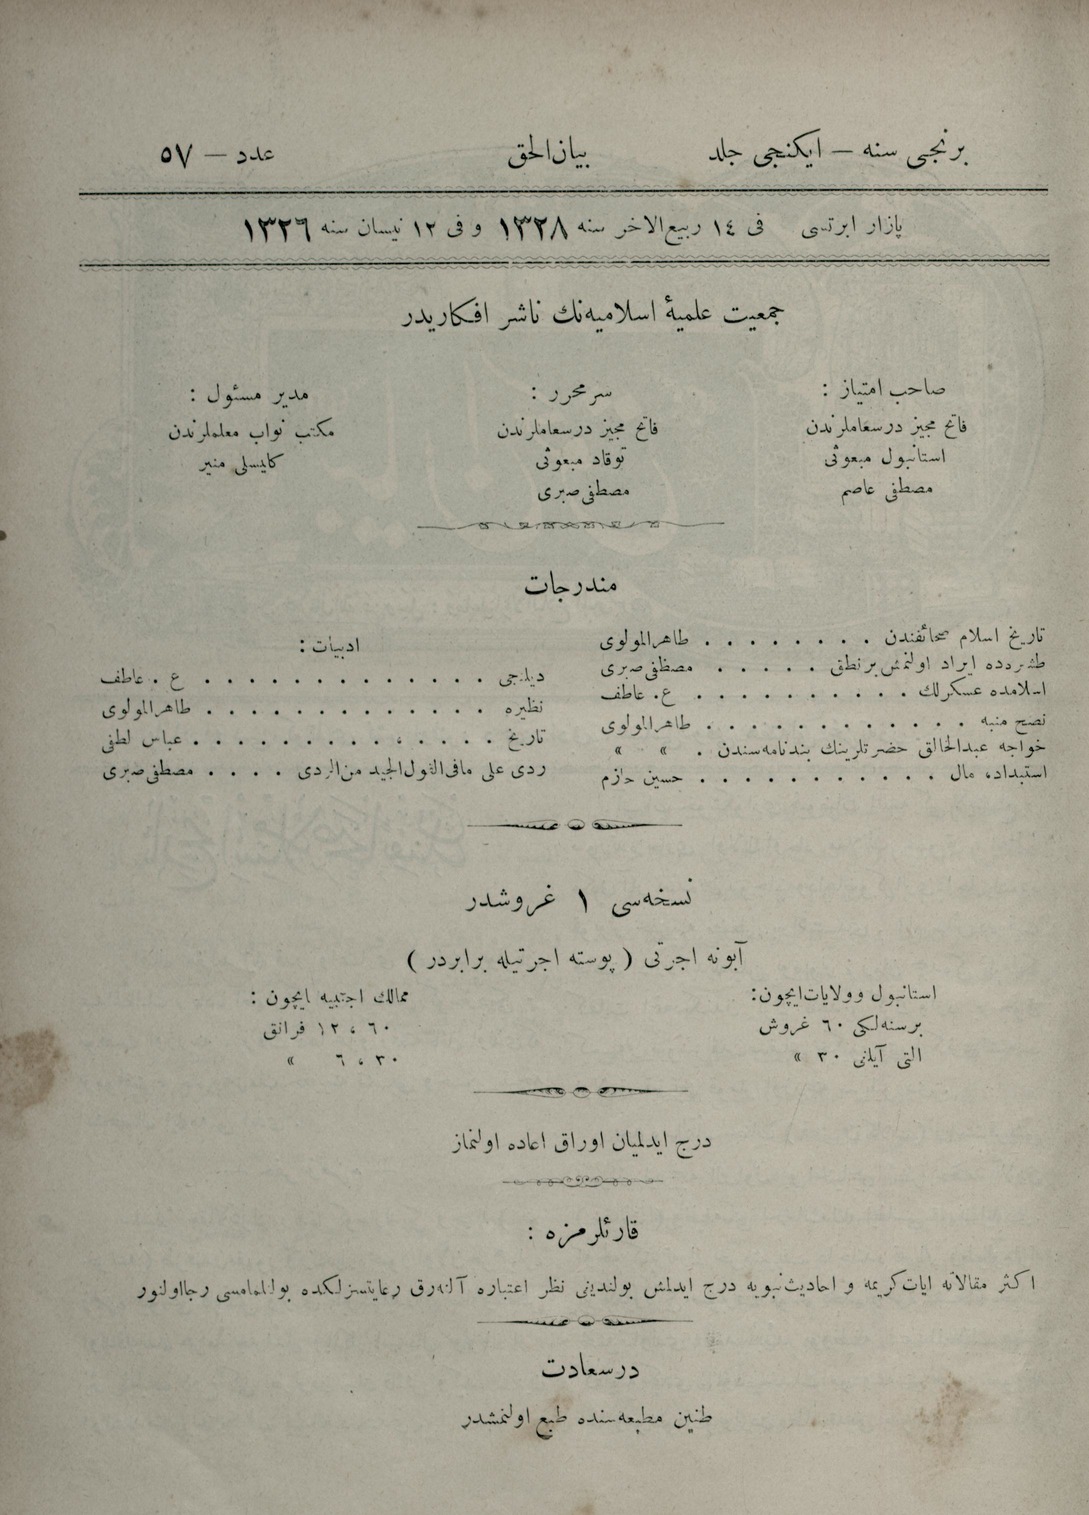 برنجی سنه — ایکنجی جلد
بیان الحق
عدد — ٥٧
پازار ایرتسی فی ١٤ ربیع الاخر سنه ١٣٢٨ و فی ١٢ نیسان سنه ١٣٢٦
جمعیت علمیۀ اسلامیه‌نك ناشر افکاریدر
صاحب امتیاز :
فاتح مجیز درسعاملرندن
استانبول مبعوثی
مصطفی عاصم
سر محرر :
فاتح مجیز درسعاملرندن
توقاد مبعوثی
مصطفی صبری
مدیر مسئول :
مکتب نواب معلملرندن
کلیسلی منیر
مندرجات
تاریخ اسلام صحائفندن . . . . . . . . طاهر المولوی
طشره‌ده ایراد اولنمش بر نطق . . . . . مصطفی صبری
اسلامده عسکرلك . . . . . . . . . . ع. عاطف
نصح منبه . . . . . . . . . . . . طاهر المولوی
خواجه عبدالخالق حضرتلرینك پندنامه‌سندن . » »
استبداد، مال . . . . . . . . . . . حسین حازم
ادبیات :
دیلنجی . . . . . . . . . . . . . ع . عاطف
نظیره . . . . . . . . . . . . . طاهر المولوی
تاریخ . . . . . . . . . . . . . عباس لطفی
ردی علی ما فی القول الجید من الردی . . . . مصطفی صبری
نسخه‌سی ١ غروشدر
آبونه اجرتی ( پوسته اجرتیله برابردر )
استانبول وولایات ایچون:
بر سنه‌لکی ٦٠ غروش
التی آیلغی ٣٠ »
ممالك اجنبیه ایچون :
٦٠ ، ١٢ فرانق
٣٠ ، ٦ »
درج ایدلمیان اوراق اعاده اولنماز
قارئلرمزه :
اکثر مقالاته ایات کریمه و احادیث نبویه درج ایدلمش بولندیغی نظر اعتباره آلنه‌رق رعایتسزلکده بولنلمامسی رجا اولنور
درسعادت
طنین مطبعه‌سنده طبع اولنمشدر